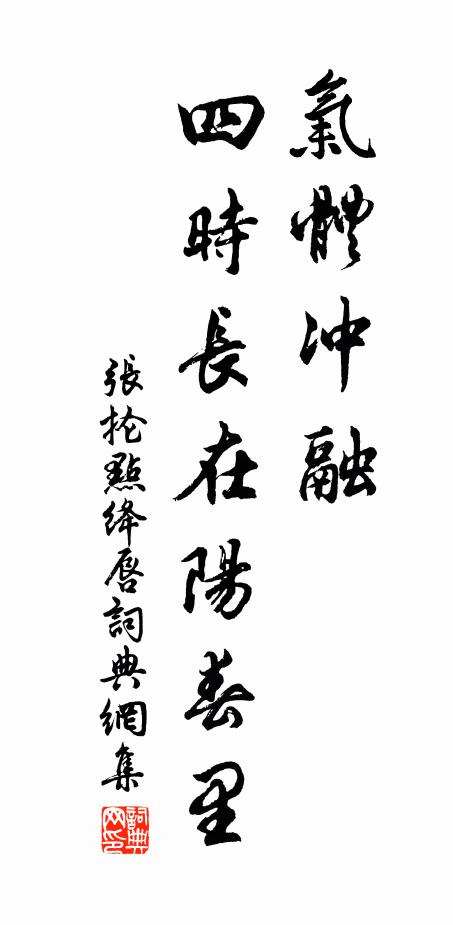 氣體冲融
四時長在陽春里
張掄點絳唇詞典網集
詞典网印